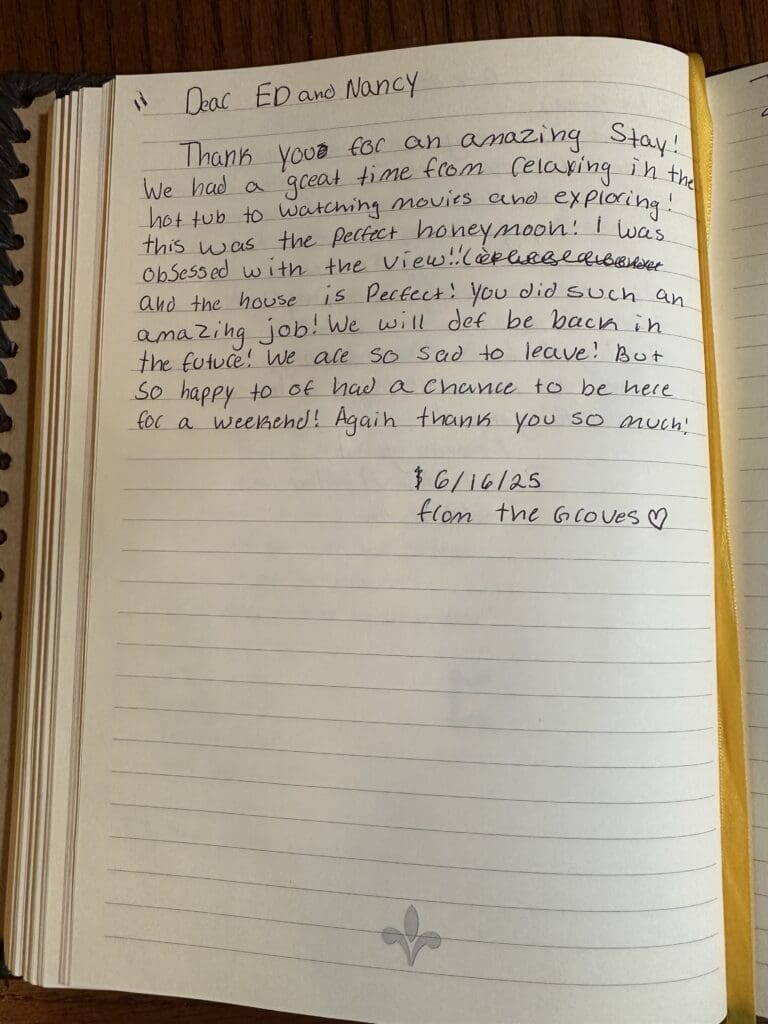 Dear ED and Nancy
Thank you for an amazing Stay!
We had a great time from relaxing in the
hot tub to watching movies and exploring!
this was the perfect honeymoon! I was
obsessed with the view!!
and the house is Perfect! you did such an
amazing job! We will def be back in
the future! We are so sad to leave! But
so happy to of had a chance to be here
for a weekend! Again thank you so much!
6/16/25
from the Groves ♡